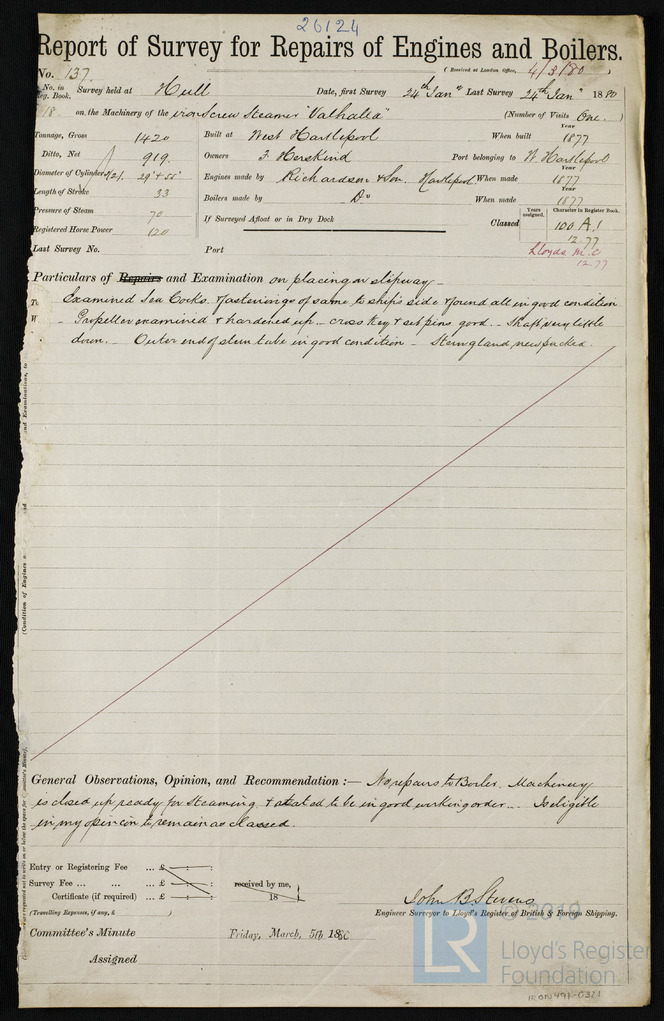 26124
Report of Survey for Repairs of Engines and Boilers.
(Received at London Office, 4/3/80)
No. 137.
No. in Reg. Book. Survey held at Hull Date, first Survey 24th Jany Last Survey 24th Jany 1880
18 on the Machinery of the iron Screw Steamer "Valhalla" (Number of Visits One.)
Tonnage, Gross 1420 Built at West Hartlepool When built Year 1877
Ditto, Net 919. Owners F. Herskind Port belonging to W. Hartlepool
Diameter of Cylinders 29" + 55" Engines made by Richardson & Son, Hartlepool When made Year 1877
Length of Stroke 33 Boilers made by Do When made Year 1877
Pressure of Steam 70
Registered Horse Power 120 If Surveyed Afloat or in Dry Dock Classed Years assigned. Character in Register Book.
100 A.1
12.77
Last Survey No. Port Lloyds M.C
12.77
Particulars of Repairs and Examination on placing on slipway –
Examined Sea Cocks & fastenings of same to ship's side & found all in good condition
– Propeller examined & hardened up – cross key & set pins good. – Shaft very little
down. – Outer end of stern tube in good condition – Stern gland new packed.
(Condition of Engines
General Observations, Opinion, and Recommendation :— No repairs to Boiler. Machinery
is closed up ready for steaming & stated to be in good working order... Is eligible
in my opinion to remain as classed.
Entry or Registering Fee ... £ : :
Survey Fee ... ... ... £ : : received by me,
Certificate (if required) ... £ : : 18
(Travelling Expenses, if any, £ )
John B. Stevens
Engineer Surveyor to Lloyd's Register of British & Foreign Shipping.
Committee's Minute Friday, March, 5th 1880
Assigned
© 2019
LR
Lloyd's Register
Foundation
IRON491-0321